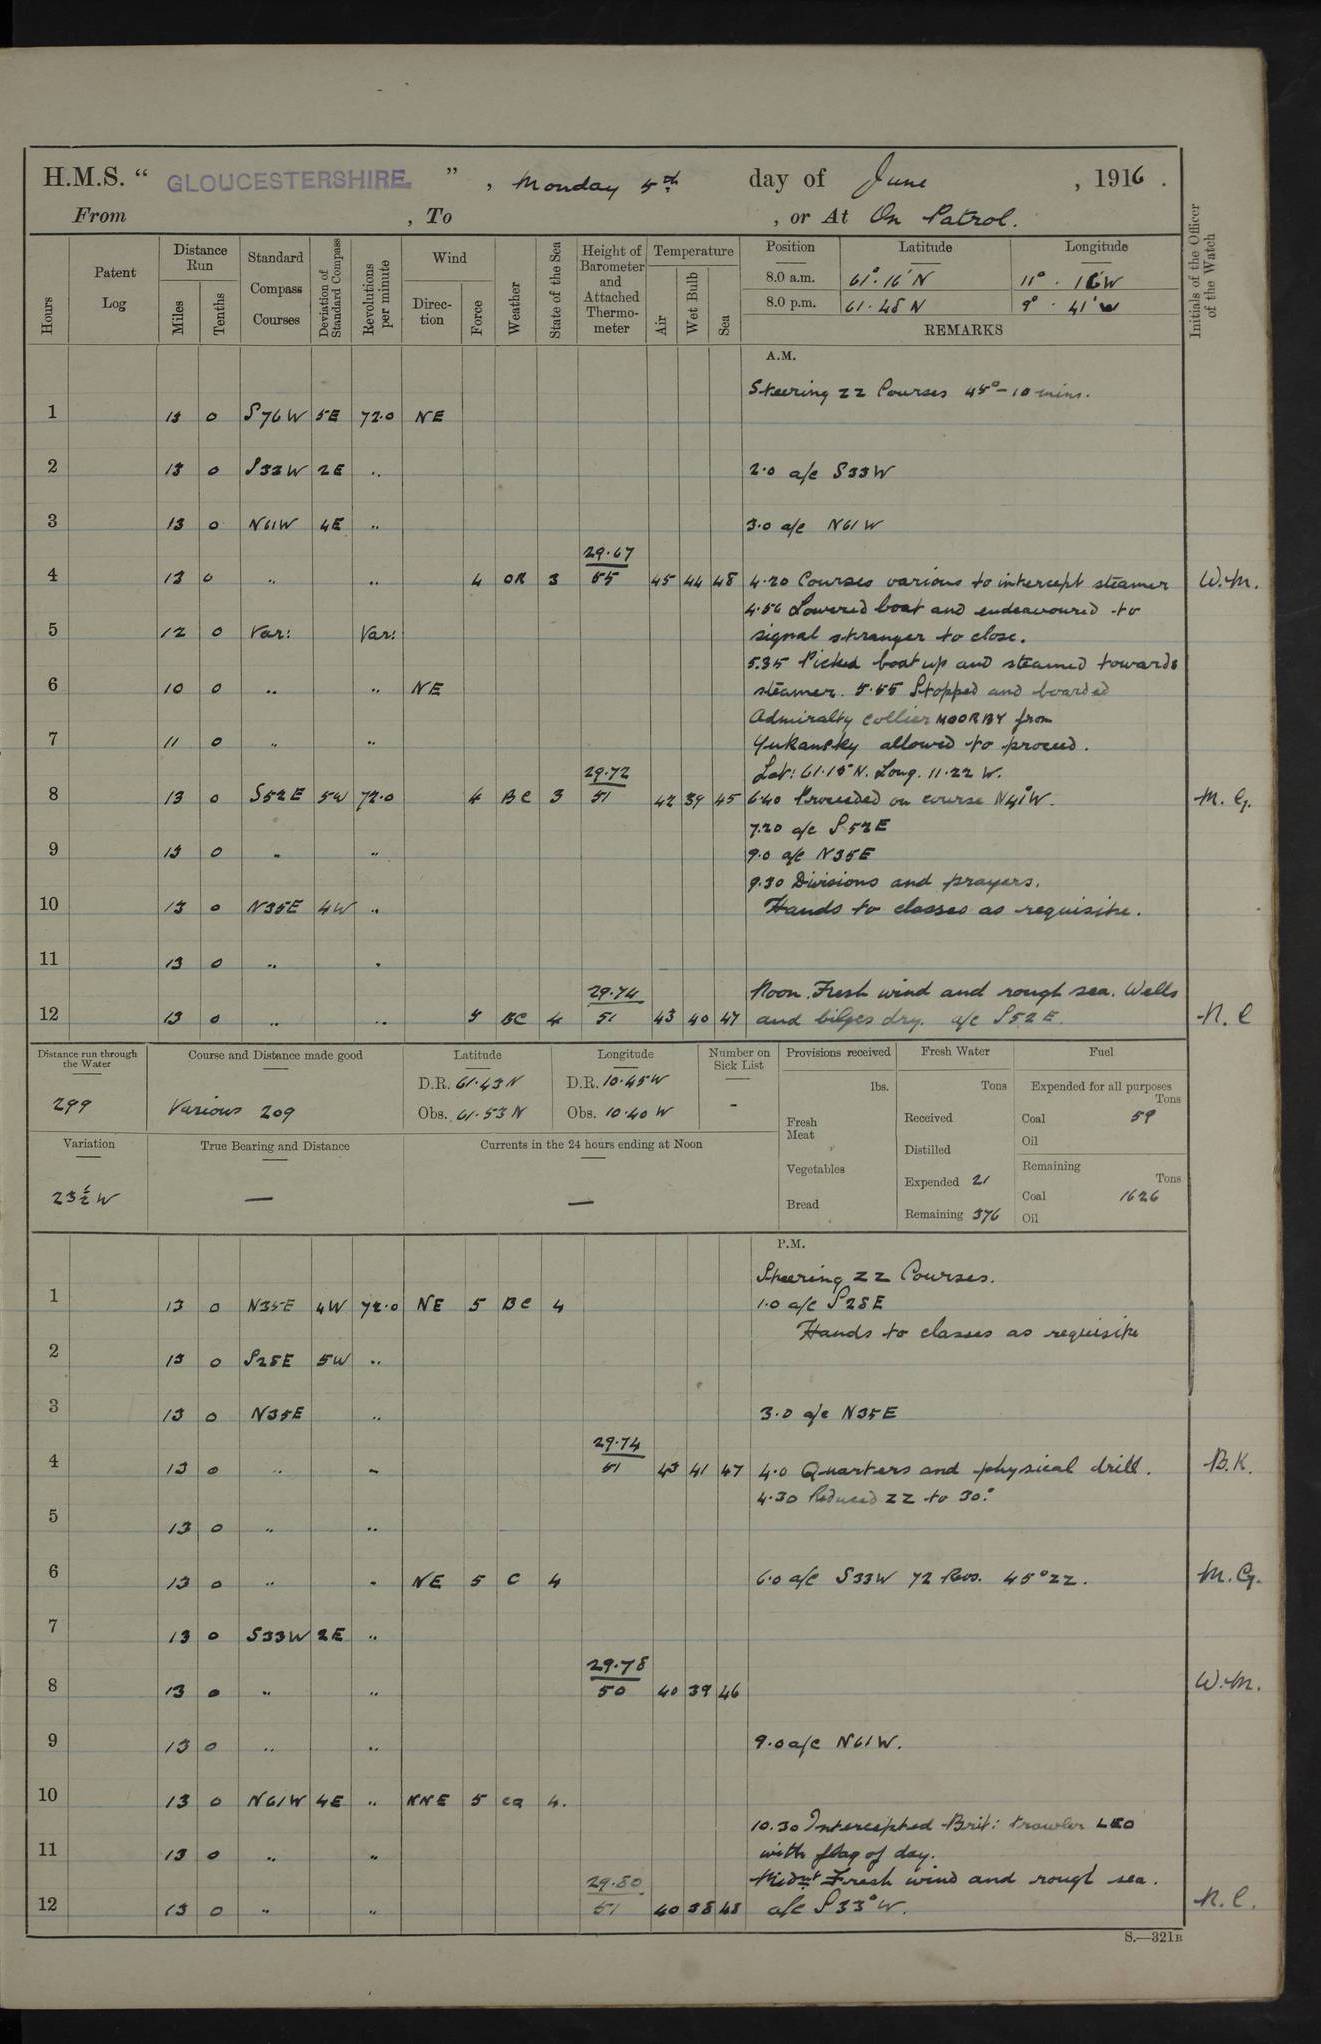 H.M.S. " GLOUCESTERSHIRE. " , Monday 5th day of June , 1916 .
From , To , or At On Patrol.
Hours
Patent Log
Distance Run
Miles
Tenths
Standard Compass Courses
Deviation of Standard Compass
Revolutions per minute
Wind
Direction
Force
Weather
State of the Sea
Height of Barometer and Attached Thermometer
Temperature
Air
Wet Bulb
Sea
Position Latitude Longitude
8.0 a.m. 61°.16' N 11° . 16' W
8.0 p.m. 61.48 N 9° . 41' W
REMARKS
Initials of the Officer of the Watch
A.M.
Steering ZZ Courses 45°-10 mins.
1 13 0 S76W 5E 72.0 NE
2 13 0 S33W 2E .. 2.0 a/c S33W
3 13 0 N61W 4E .. 3.0 a/c N61W
29.67
4 13 0 .. .. 4 OR 3 55 45 44 48 4.20 Courses various to intercept steamer W.M.
4.56 Lowered boat and endeavoured to
5 12 0 Var: Var: signal stranger to close.
5.35 Picked boat up and steamed towards
6 10 0 .. .. NE steamer. 5.55 Stopped and boarded
Admiralty collier MOORBY from
7 11 0 .. .. Yukansky allowed to proceed.
29.72 Lat: 61.15 N. Long. 11.22 W.
8 13 0 S52E 5W 72.0 4 BC 3 51 42 39 45 6.40 Proceeded on course N41°W. M.G.
7.20 a/c S52E
9 13 0 .. .. 9.0 a/c N35E
9.30 Divisions and prayers.
10 13 0 N35E 4W .. Hands to classes as requisite.
11 13 0 .. ..
29.74 Noon. Fresh wind and rough sea. Wells
12 13 0 .. .. 5 BC 4 51 43 40 47 and bilges dry. a/c S52E. N.C
Distance run through the Water
299
Course and Distance made good
Various 209
Latitude
D.R. 61.43 N
Obs. 61.53 N
Longitude
D.R. 10.45 W
Obs. 10.40 W
Number on Sick List
-
Provisions received
lbs.
Fresh Meat
Vegetables
Bread
Fresh Water
Tons
Received
Distilled
Expended 21
Remaining 376
Fuel
Expended for all purposes
Tons
Coal 59
Oil
Remaining
Tons
Coal 1626
Oil
Variation
23½ W
True Bearing and Distance
—
Currents in the 24 hours ending at Noon
—
P.M.
Steering ZZ Courses.
1 13 0 N35E 4W 72.0 NE 5 BC 4 1.0 a/c S28E
Hands to classes as requisite
2 13 0 S28E 5W ..
3 13 0 N35E .. 3.0 a/c N35E
29.74
4 13 0 .. .. 51 43 41 47 4.0 Quarters and physical drill. B.K.
4.30 Reduced ZZ to 30°
5 13 0 .. ..
6 13 0 .. .. NE 5 C 4 6.0 a/c S33W 72 Revs. 45° ZZ. M.G.
7 13 0 S33W 2E ..
29.78
8 13 0 .. .. 50 40 39 46 W.M.
9 13 0 .. .. 9.0 a/c N61W.
10 13 0 N61W 4E .. NNE 5 CQ 4.
10.30 Intercepted Brit: trawler LEO
11 13 0 .. .. with flag of day.
29.80 Midnt Fresh wind and rough sea.
12 13 0 .. .. 51 40 38 48 a/c S33°W. N.C.
S.—321B